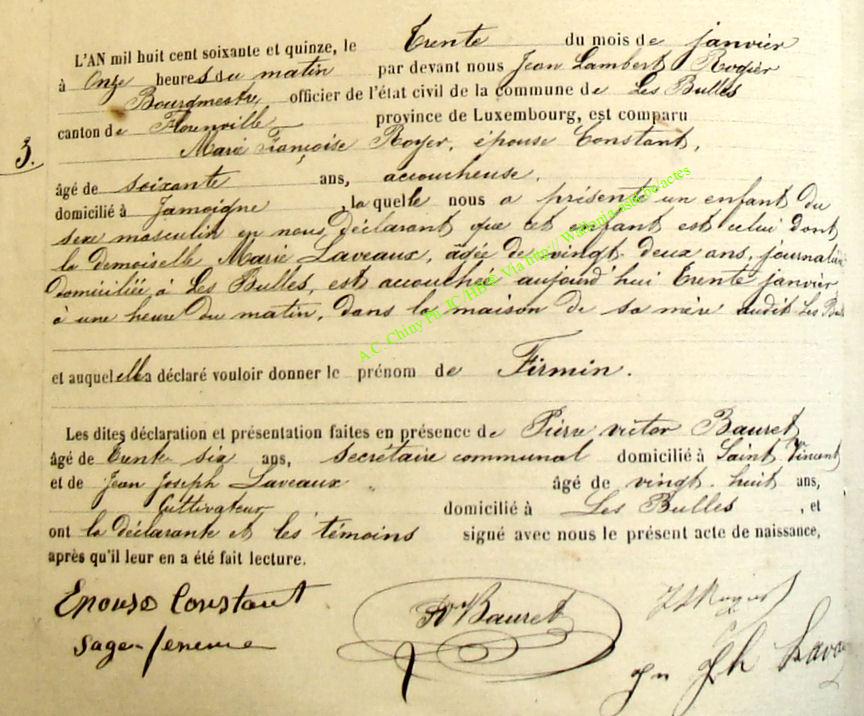 L'AN mil huit cent soixante et quinze, le Trente du mois de janvier
à Onze heures du matin par devant nous Jean Lambert Rogier
Bourgmestre officier de l'état civil de la commune de Les Bulles
canton de Florenville province de Luxembourg, est comparu
3. Marie Françoise Royer, épouse Constant,
âgé de soixante ans, accoucheuse.
domicilié à Jamoigne, laquelle nous a présenté un enfant du
sexe masculin en nous déclarant que cet enfant est celui dont
la demoiselle Marie Laveaux, âgée de vingt deux ans, journalière
domiciliée à Les Bulles, est accouchée aujourd'hui trente janvier
à une heure du matin, dans la maison de sa mère audit Les Bulles
et auquel elle a déclaré vouloir donner le prénom de Firmin.
Les dites déclaration et présentation faites en présence de Pierre victor Bauret
âgé de trente six ans, secrétaire communal domicilié à Saint Vincent
et de Jean Joseph Laveaux âgé de vingt-huit ans,
Cultivateur domicilié à Les Bulles, et
ont la déclarante et les témoins signé avec nous le présent acte de naissance,
après qu'il leur en a été fait lecture.
Epouse Constant
Bauret
sage-femme
A.C. Chiny Ph. JC /HBC Via http//